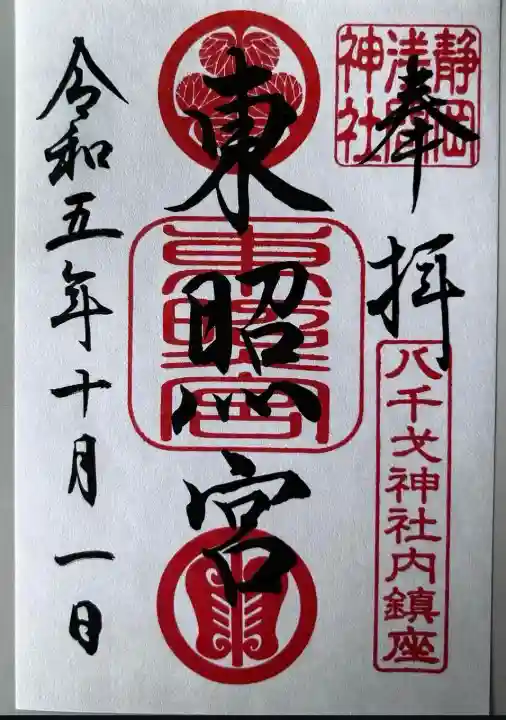 静岡
浅間
神社
奉拝
八千戈神社内鎮座
東照宮
東照宮
令和五年十月一日